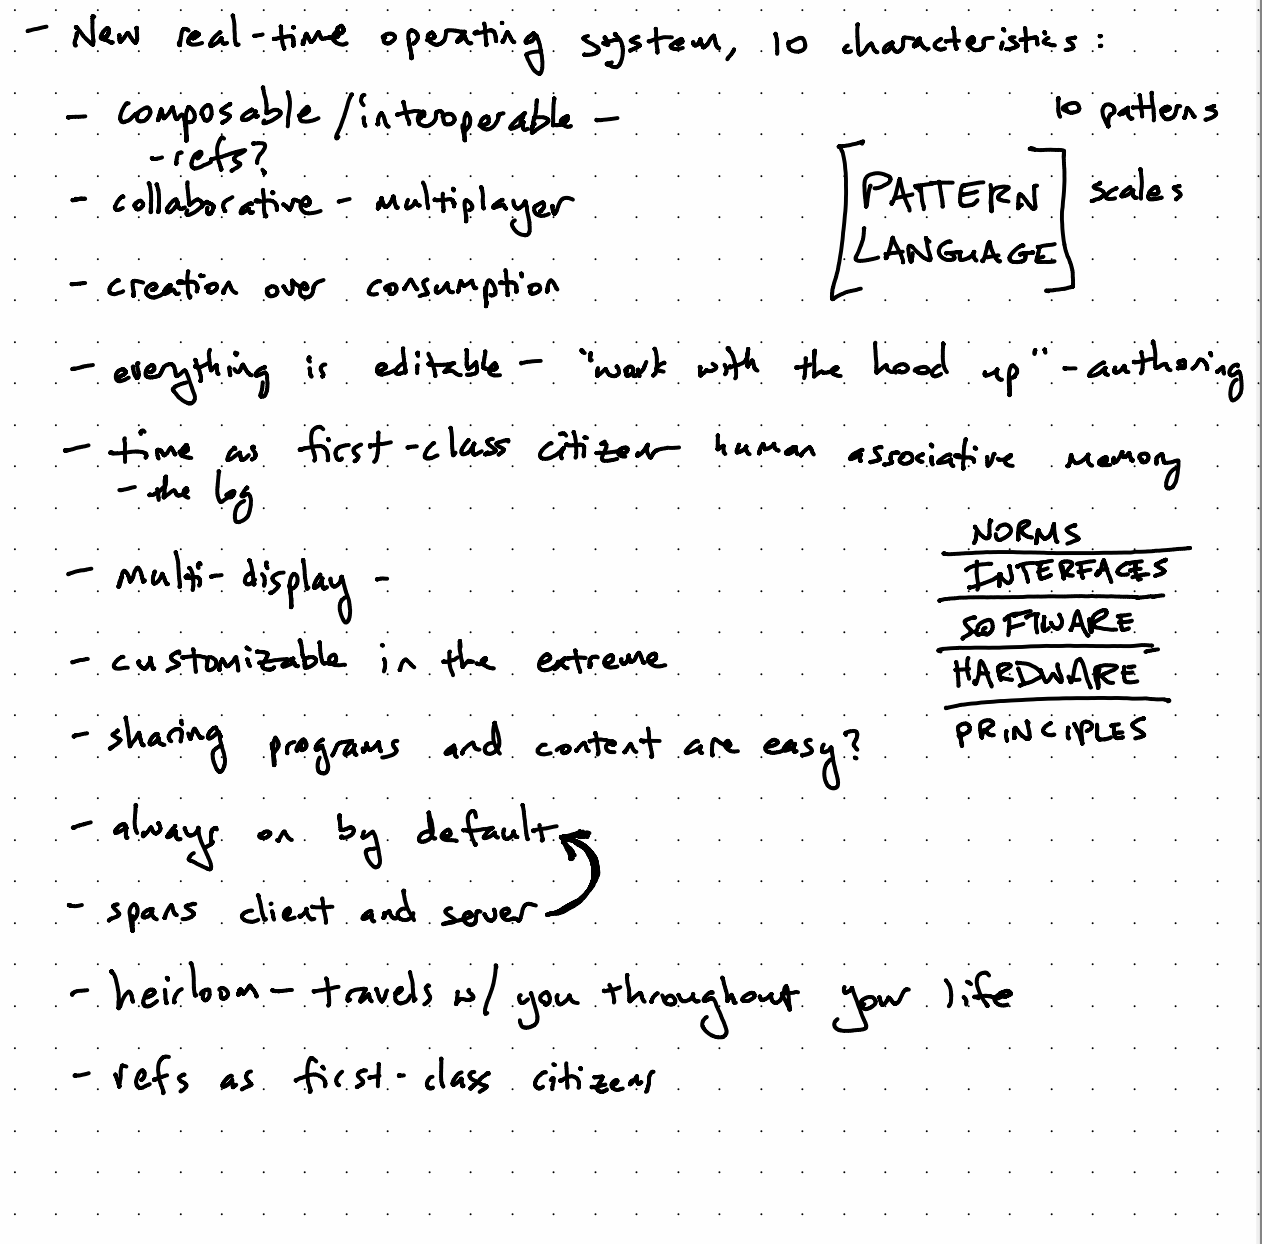 - New real-time operating system, 10 characteristics:
- composable/interoperable -
- refs?
- collaborative - multiplayer
- creation over consumption
- everything is editable - "work with the hood up" - authoring
- time as first-class citizen - human associative memory
- the log
- multi-display -
- customizable in the extreme
- sharing programs and content are easy?
- always on by default
- spans client and server
- heirloom - travels w/ you throughout your life
- refs as first-class citizens
10 patterns
[PATTERN
LANGUAGE]
scales
NORMS
INTERFACES
SOFTWARE
HARDWARE
PRINCIPLES